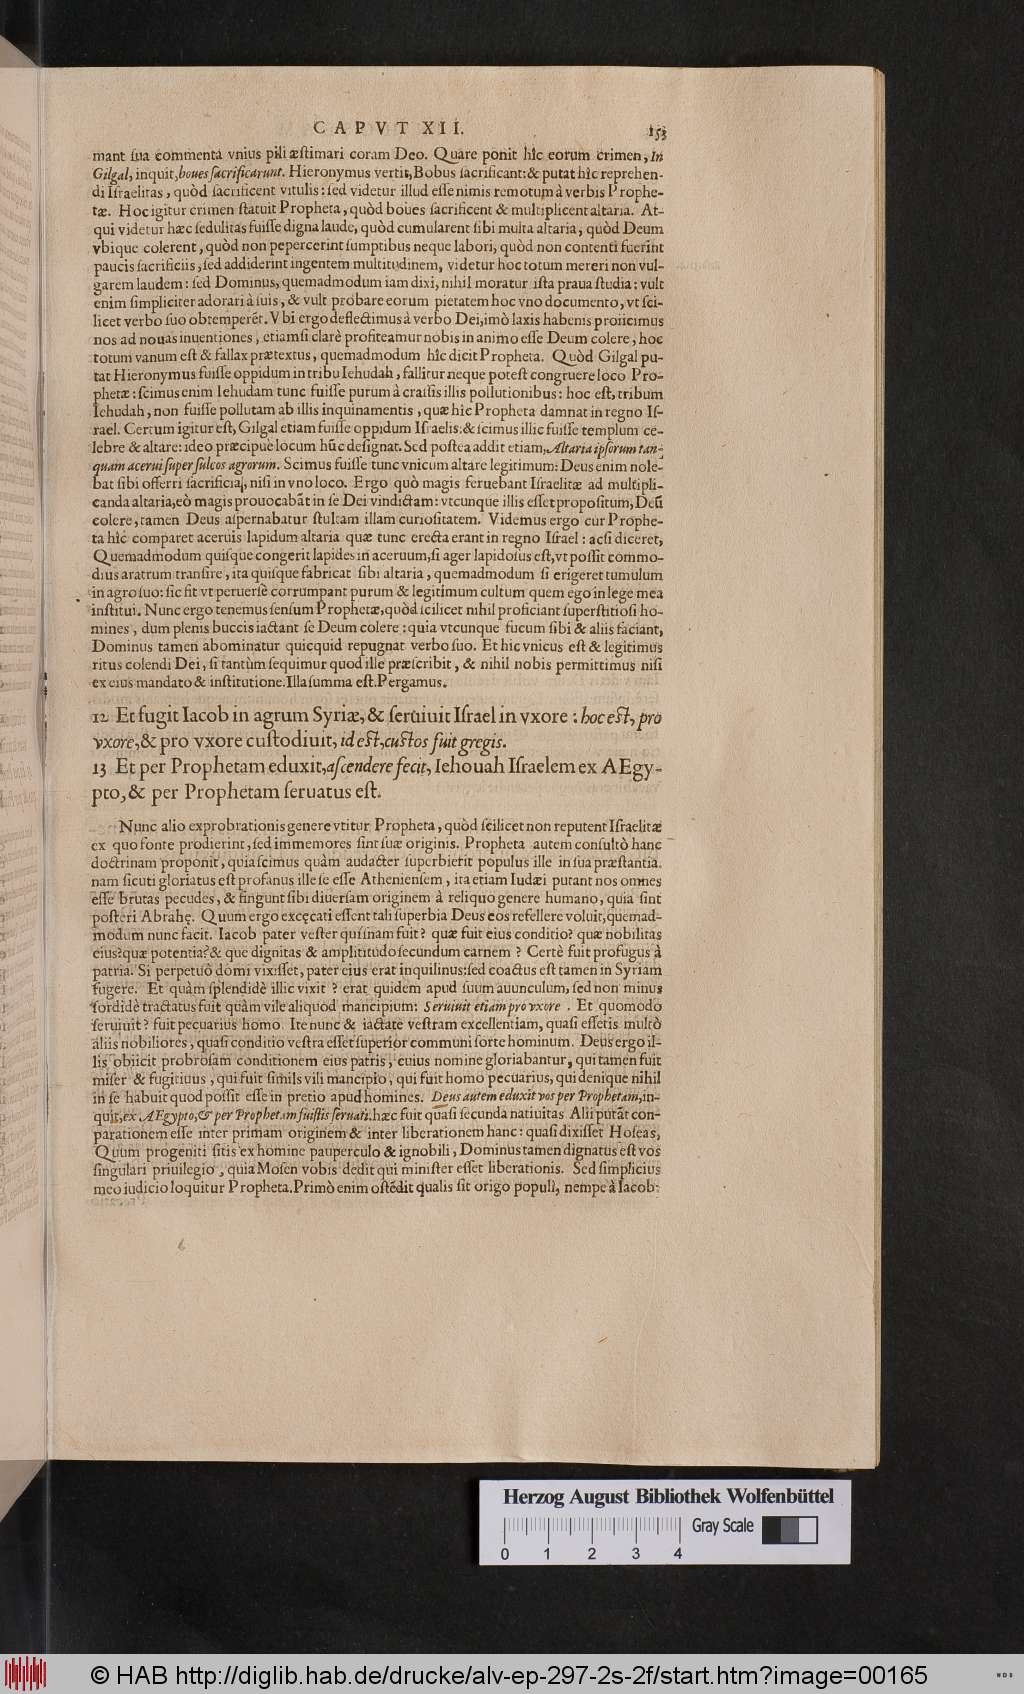 CAPVT XII. 153
mant ſua commenta vnius pili æſtimari coram Deo. Quare ponit hîc eorum crimen, In
Gilgal, inquit, boues ſacrificarunt. Hieronymus vertit, Bobus ſacrificant: & putat hîc reprehen-
di Iſraelitas, quòd ſacrificent vitulis: ſed videtur illud eſſe nimis remotum à verbis Prophe-
tæ. Hoc igitur crimen ſtatuit Propheta, quòd boues ſacrificent & multiplicent altaria. At-
qui videtur hæc ſedulitas fuiſſe digna laude, quòd cumularent ſibi multa altaria, quòd Deum
vbique colerent, quòd non pepercerint ſumptibus neque labori, quòd non contenti fuerint
paucis ſacrificiis, ſed addiderint ingentem multitudinem, videtur hoc totum mereri non vul-
garem laudem: ſed Dominus, quemadmodum iam dixi, nihil moratur iſta praua ſtudia: vult
enim ſimpliciter adorari à ſuis, & vult probare eorum pietatem hoc vno documento, vt ſci-
licet verbo ſuo obtemperẽt. Vbi ergo deflectimus à verbo Dei, imò laxis habenis proiicimus
nos ad nouas inuentiones, etiamſi clarè profiteamur nobis in animo eſſe Deum colere, hoc
totum vanum eſt & fallax prætextus, quemadmodum hîc dicit Propheta. Quòd Gilgal pu-
tat Hieronymus fuiſſe oppidum in tribu Iehudah, fallitur neque poteſt congruere loco Pro-
phetæ: ſcimus enim Iehudam tunc fuiſſe purum à craſſis illis pollutionibus: hoc eſt, tribum
Iehudah, non fuiſſe pollutam ab illis inquinamentis, quæ hîc Propheta damnat in regno Iſ-
rael. Certum igitur eſt, Gilgal etiam fuiſſe oppidum Iſraelis: & ſcimus illic fuiſſe templum ce-
lebre & altare: ideo præcipuè locum hũc deſignat. Sed poſtea addit etiam, Altaria ipſorum tan-
quam acerui ſuper ſulcos agrorum. Scimus fuiſſe tunc vnicum altare legitimum: Deus enim nole-
bat ſibi offerri ſacrificia, niſi in vno loco. Ergo quò magis feruebant Iſraelitæ ad multipli-
canda altaria, eò magis prouocabãt in ſe Dei vindictam: vtcunque illis eſſet propoſitum, Deũ
colere, tamen Deus aſpernabatur ſtultam illam curioſitatem. Videmus ergo cur Prophe-
ta hîc comparet aceruis lapidum altaria quæ tunc erecta erant in regno Iſrael: acſi diceret,
Quemadmodum quiſque congerit lapides in aceruum, ſi ager lapidoſus eſt, vt poſſit commo-
dius aratrum tranſire, ita quiſque fabricat ſibi altaria, quemadmodum ſi erigeret tumulum
in agro ſuo: ſic fit vt peruerſè corrumpant purum & legitimum cultum quem ego in lege mea
inſtitui. Nunc ergo tenemus ſenſum Prophetæ, quòd ſcilicet nihil proficiant ſuperſtitioſi ho-
mines, dum plenis buccis iactant ſe Deum colere: quia vtcunque fucum ſibi & aliis faciant,
Dominus tamen abominatur quicquid repugnat verbo ſuo. Et hic vnicus eſt & legitimus
ritus colendi Dei, ſi tantùm ſequimur quod ille præſcribit, & nihil nobis permittimus niſi
ex eius mandato & inſtitutione. Illa ſumma eſt. Pergamus.
12 Et fugit Iacob in agrum Syriæ, & ſeruiuit Iſrael in vxore: hoc eſt, pro
vxore, & pro vxore cuſtodiuit, id eſt, cuſtos fuit gregis.
13 Et per Prophetam eduxit, aſcendere fecit, Iehouah Iſraelem ex AEgy-
pto, & per Prophetam ſeruatus eſt.
Nunc alio exprobrationis genere vtitur Propheta, quòd ſcilicet non reputent Iſraelitæ
ex quo fonte prodierint, ſed immemores ſint ſuæ originis. Propheta autem conſultò hanc
doctrinam proponit, quia ſcimus quàm audacter ſuperbierit populus ille in ſua præſtantia.
nam ſicuti gloriatus eſt profanus ille ſe eſſe Athenienſem, ita etiam Iudæi putant nos omnes
eſſe brutas pecudes, & fingunt ſibi diuerſam originem à reliquo genere humano, quia ſint
poſteri Abrahę. Quum ergo excęcati eſſent tali ſuperbia Deus eos refellere voluit, quemad-
modum nunc facit. Iacob pater veſter quiſnam fuit? quæ fuit eius conditio? quæ nobilitas
eius? quæ potentia? & que dignitas & amplitudo ſecundum carnem? Certè fuit profugus à
patria. Si perpetuò domi vixiſſet, pater eius erat inquilinus: ſed coactus eſt tamen in Syriam
fugere. Et quàm ſplendidè illic vixit? erat quidem apud ſuum auunculum, ſed non minus
ſordidè tractatus fuit quàm vile aliquod mancipium: Seruiuit etiam pro vxore. Et quomodo
ſeruiuit? fuit pecuarius homo. Ite nunc & iactate veſtram excellentiam, quaſi eſſetis multò
aliis nobiliores, quaſi conditio veſtra eſſet ſuperior communi ſorte hominum. Deus ergo il-
lis obiicit probroſam conditionem eius patris, cuius nomine gloriabantur, qui tamen fuit
miſer & fugitiuus, qui fuit ſimils vili mancipio, qui fuit homo pecuarius, qui denique nihil
in ſe habuit quod poſſit eſſe in pretio apud homines. Deus autem eduxit vos per Prophetam, in-
quit, ex AEgypto, & per Prophetam fuiſtis ſeruati. hæc fuit quaſi ſecunda natiuitas Alii putãt con-
parationem eſſe inter primam originem & inter liberationem hanc: quaſi dixiſſet Hoſeas,
Quum progeniti ſitis ex homine pauperculo & ignobili, Dominus tamen dignatus eſt vos
ſingulari priuilegio, quia Moſen vobis dedit qui miniſter eſſet liberationis. Sed ſimplicius
meo iudicio loquitur Propheta. Primò enim oſtẽdit qualis ſit origo populi, nempe à Iacob:
6
Herzog August Bibliothek Wolfenbüttel
Gray Scale
0 1 2 3 4
© HAB http://diglib.hab.de/drucke/alv-ep-297-2s-2f/start.htm?image=00165